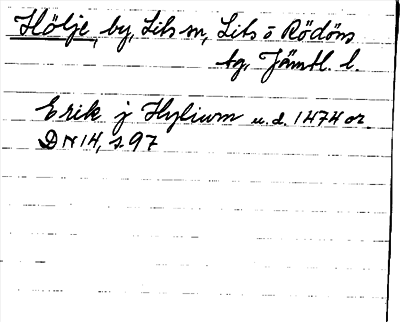 Hölje, by, Lits sn, Lits o Rödöns
tg, Jämtl. l.
Erik j Hylium u.d. 1474 or
DN 14, s. 97